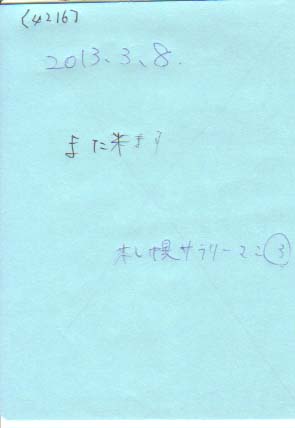 (4216)
2013.3.8.
また来ます
札幌サラリーマン③